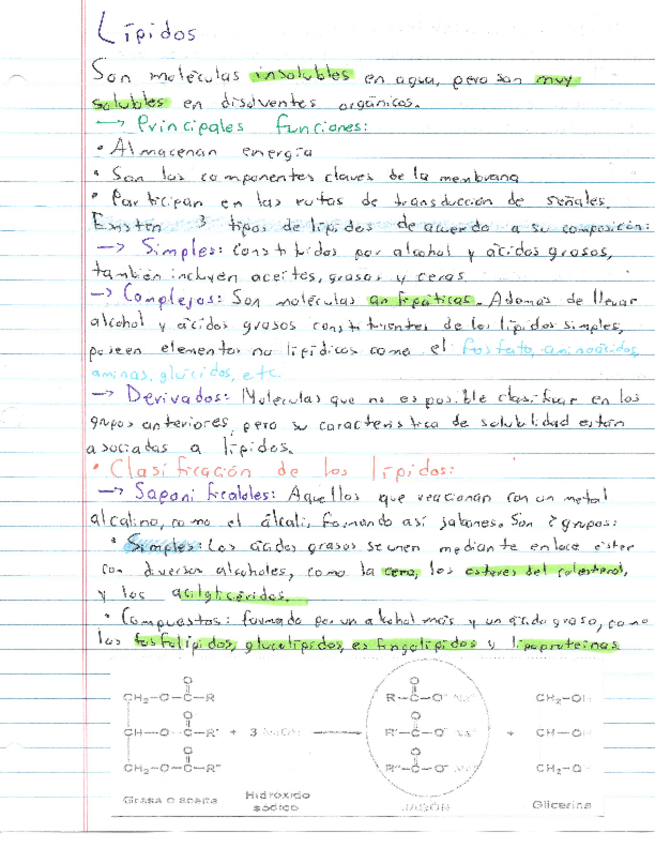 Lípidos
Son moléculas insolubles en agua, pero son muy
solubles en disolventes orgánicos.
—> Principales funciones:
• Almacenan energía
• Son los componentes claves de la membrana
• Participan en las rutas de transducción de señales.
Existen 3 tipos de lípidos de acuerdo a su composición:
—> Simples: Constituidos por alcohol y ácidos grasos,
también incluyen aceites, grasas y ceras.
—> Complejos: Son moléculas anfipáticas. Además de llevar
alcohol y ácidos grasos constituyentes de los lípidos simples,
poseen elementos no lipídicos como el fosfato, aminoácidos,
aminas, glúcidos, etc.
—> Derivados: Moléculas que no es posible clasificar en los
grupos anteriores, pero su característica de solubilidad están
asociadas a lípidos.
• Clasificación de los lípidos:
—> Saponificables: Aquellos que reaccionan con un metal
alcalino, como el álcali, formando así jabones. Son 2 grupos:
• Simples: Los ácidos grasos se unen mediante enlace éster
con diversos alcoholes, como la cera, los ésteres del colesterol,
y los acilglicéridos.
• Compuestos: formado por un alcohol más y un ácido graso, como
los fosfolípidos, glucolípidos, esfingolípidos y lipoproteínas
O O
CH₂—O—C—R R—C—O⁻ Na⁺ CH₂—OH
O O
CH—O—C—R' + 3 NaOH —> R'—C—O⁻ Na⁺ + CH—OH
O O
CH₂—O—C—R" R"—C—O⁻ Na⁺ CH₂—O
Grasa o aceite Hidróxido sódico JABÓN Glicerina